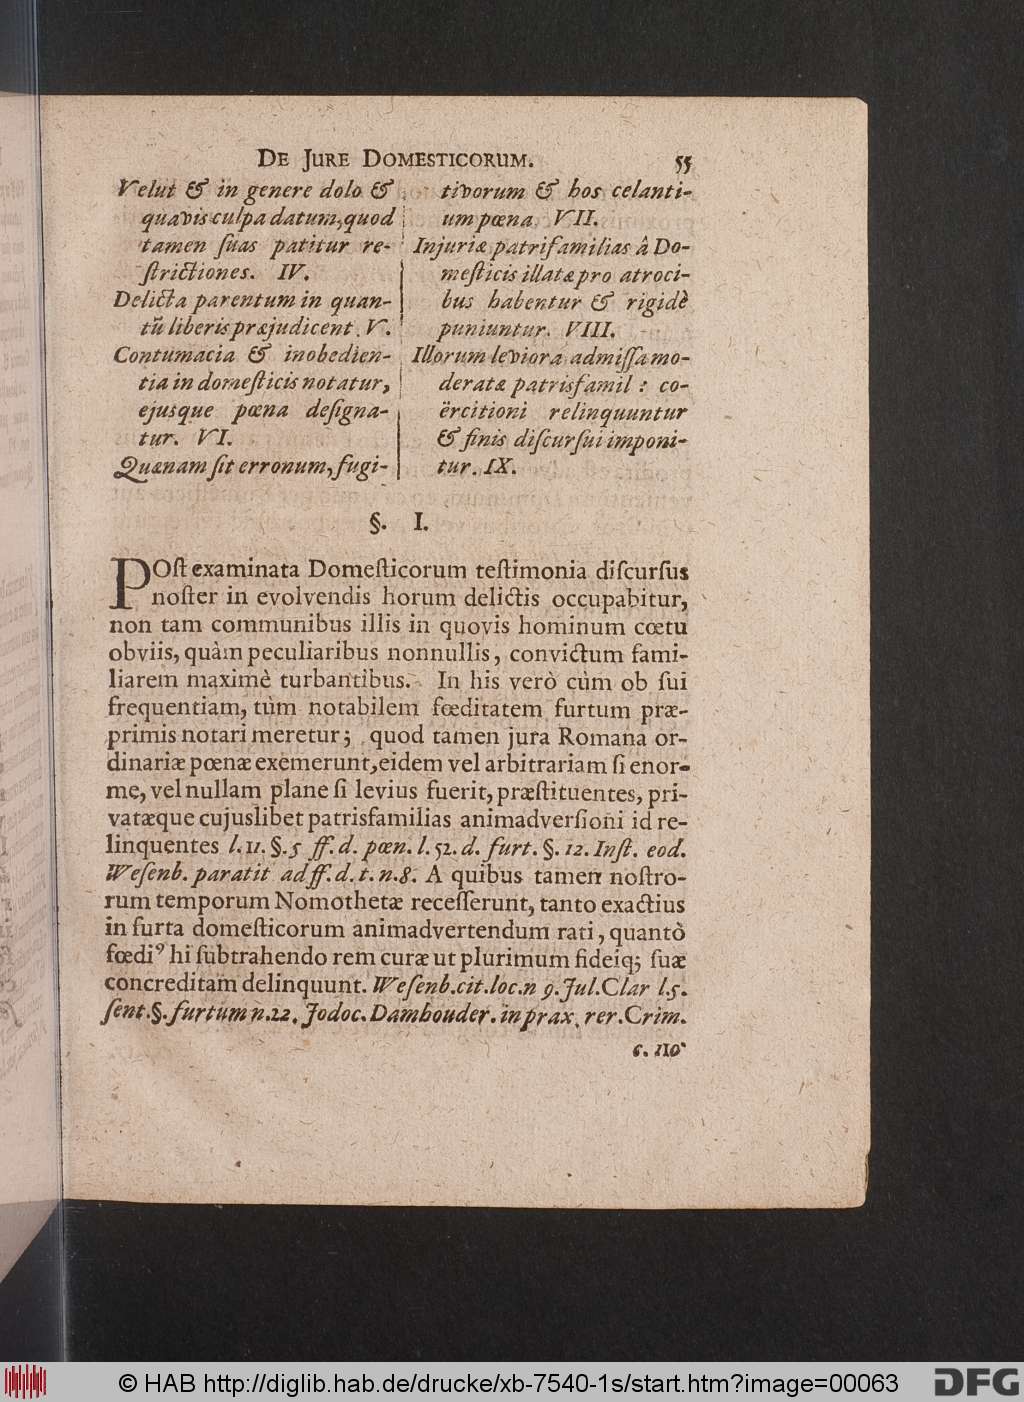 DE JURE DOMESTICORUM. 55
Velut & in genere dolo &
quavis culpa datum, quod
tamen ſuas patitur re-
ſtrictiones. IV.
Delicta parentum in quan-
tũ liberis præjudicent. V.
Contumacia & inobedien-
tia in domeſticis notatur,
ejusque pœna deſigna-
tur. VI.
Quænam ſit erronum, fugi-
tivorum & hos celanti-
um pœna. VII.
Injuriæ patrifamilias â Do-
meſticis illatæ pro atroci-
bus habentur & rigidè
puniuntur. VIII.
Illorum leviora admiſſa mo-
deratæ patrisfamil: co-
ërcitioni relinquuntur
& finis diſcurſui imponi-
tur. IX.
§. I.
POſt examinata Domeſticorum teſtimonia diſcurſus
noſter in evolvendis horum delictis occupabitur,
non tam communibus illis in quovis hominum cœtu
obviis, quàm peculiaribus nonnullis, convictum fami-
liarem maximè turbantibus. In his verò cùm ob ſui
frequentiam, tùm notabilem fœditatem furtum præ-
primis notari meretur; quod tamen jura Romana or-
dinariæ pœnæ exemerunt, eidem vel arbitrariam ſi enor-
me, vel nullam plane ſi levius fuerit, præſtituentes, pri-
vatæque cujuslibet patrisfamilias animadverſioni id re-
linquentes l. 11. §. 5 ff. d. pœn. l. 52. d. furt. §. 12. Inſt. eod.
Weſenb. paratit ad ff. d. t. n. 8. A quibus tamen noſtro-
rum temporum Nomothetæ receſſerunt, tanto exactius
in furta domeſticorum animadvertendum rati, quantò
fœdiꝰ hi ſubtrahendo rem curæ ut plurimum fideiq; ſuæ
concreditam delinquunt. Weſenb. cit. loc. n 9. Jul. Clar l. 5.
ſent. §. furtum n. 22. Jodoc. Damhouder. in prax. rer. Crim.
c. 110.
© HAB http://diglib.hab.de/drucke/xb-7540-1s/start.htm?image=00063
DFG